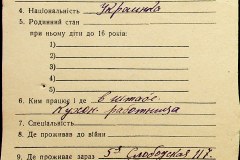 4. Національність Украинка
5. Родинний стан
при ньому діти до 16 років:
1.
2.
3.
4.
5.
6. Ким працює і де в штабе
Кухон. работница
7. Спеціальність
8. Де проживав до війни
9. Де проживає зараз 5я Слободская 117